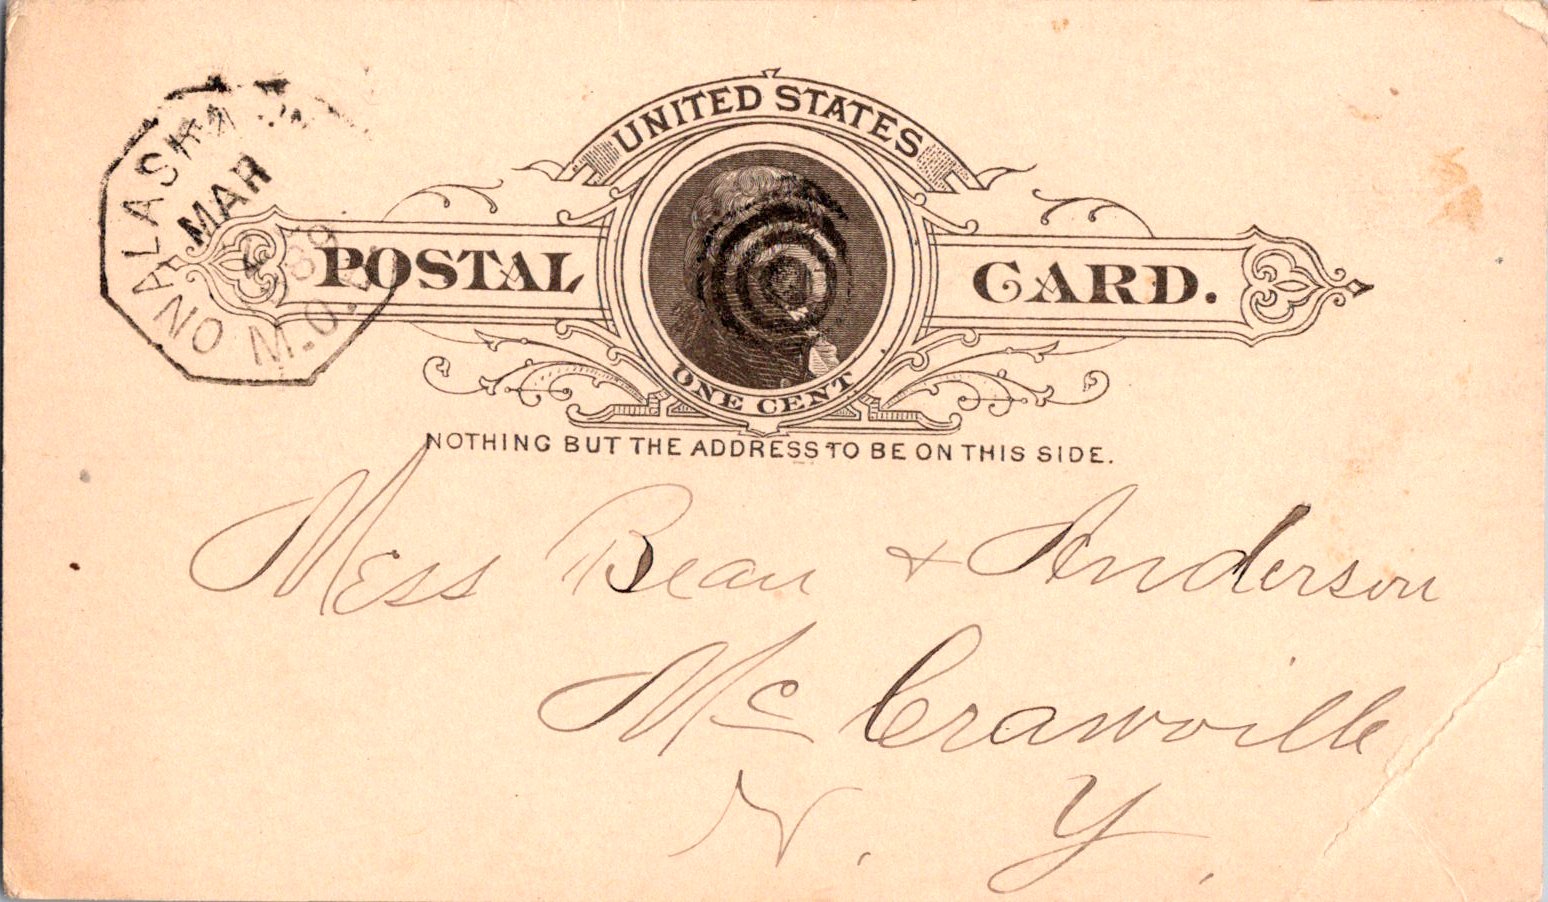 UNITED STATES
POSTAL CARD.
ONE CENT
NOTHING BUT THE ADDRESS TO BE ON THIS SIDE.
ONALASKA
MAR
4
89
M.O.B.
Mess Bean & Anderson
Mc Crawville
N. Y.